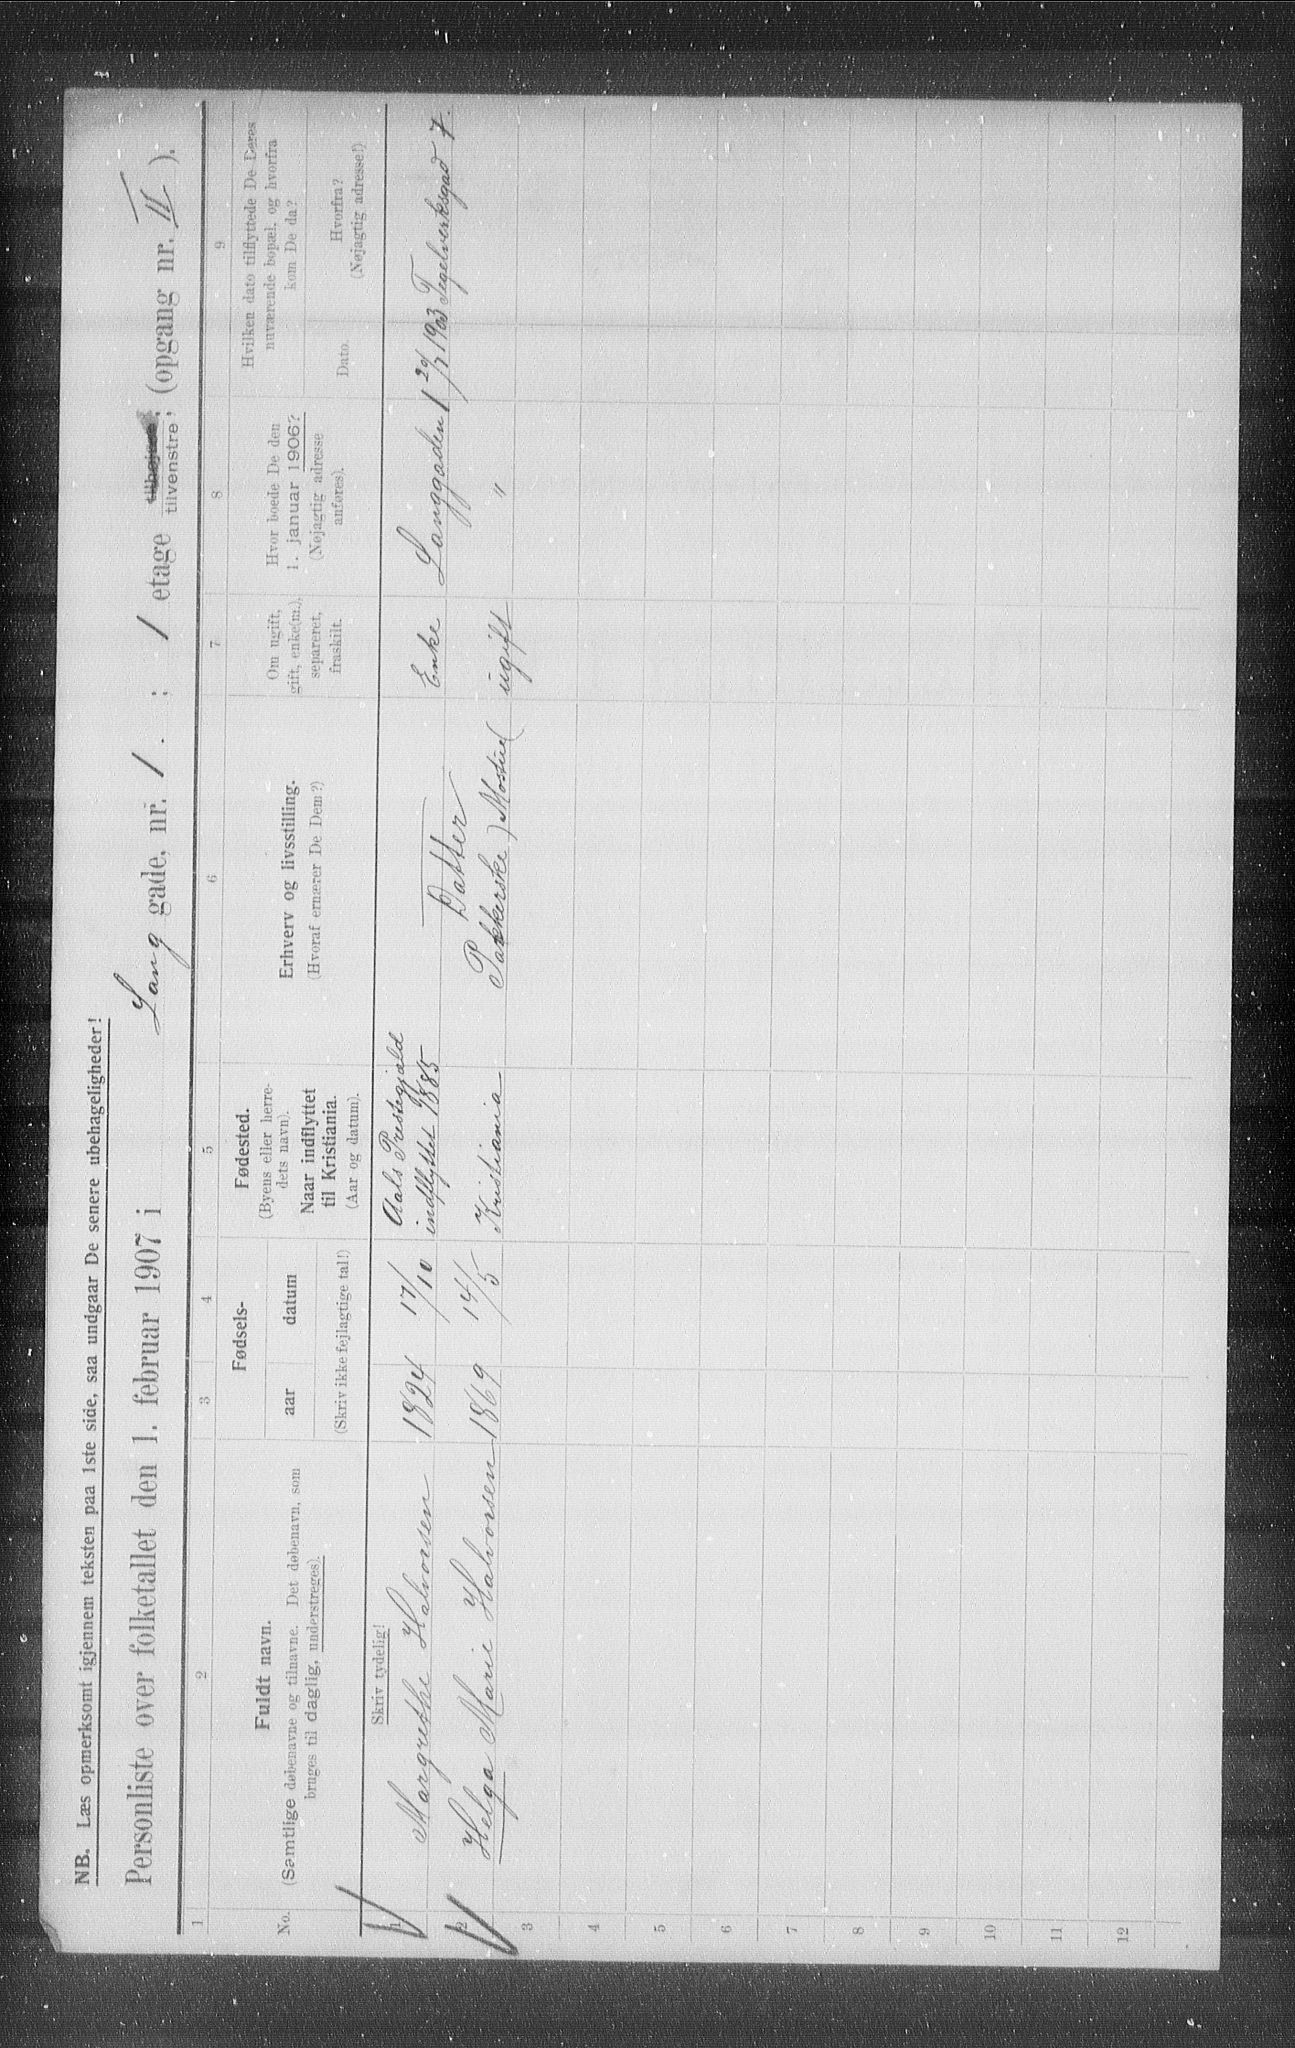 NB. Læs opmerksomt igjennem teksten paa 1ste side, saa undgaar De senere ubehageligheder!
Personliste over folketallet den 1. februar 1907 i Lang gade, nr. 1. ; 1 etage tilhøjre, tilvenstre, (opgang nr. II ).
1 2 3 4 5 6 7 8 9
No.
Fuldt navn.
(Samtlige døbenavne og tilnavne. Det døbenavn, som
bruges til daglig, understreges).
Fødsels-
aar datum
(Skriv ikke fejlagtige tal!)
Fødested.
(Byens eller herre-
dets navn).
Naar indflyttet
til Kristiania.
(Aar og datum).
Erhverv og livsstilling.
(Hvoraf ernærer De Dem?)
Om ugift,
gift, enke(m.),
separeret,
fraskilt.
Hvor boede De den
1. januar 1906?
(Nøjagtig adresse
anføres).
Hvilken dato tilflyttede De Deres
nuværende bopæl, og hvorfra
kom De da?
Dato.
Hvorfra?
(Nøjagtig adresse!)
Skriv tydelig!
1 Margrethe Halvorsen 1824 17/10 Aals Prestegjæld
indflyttet 1885 Enke Langgaden 1 29/3 1903 Tegelverksgad 7.
2 Helga Marie Halvorsen 1869 14/5 Kristiania Datter
Pakkerske ugift "
3
4
5
6
7
8
9
10
11
12